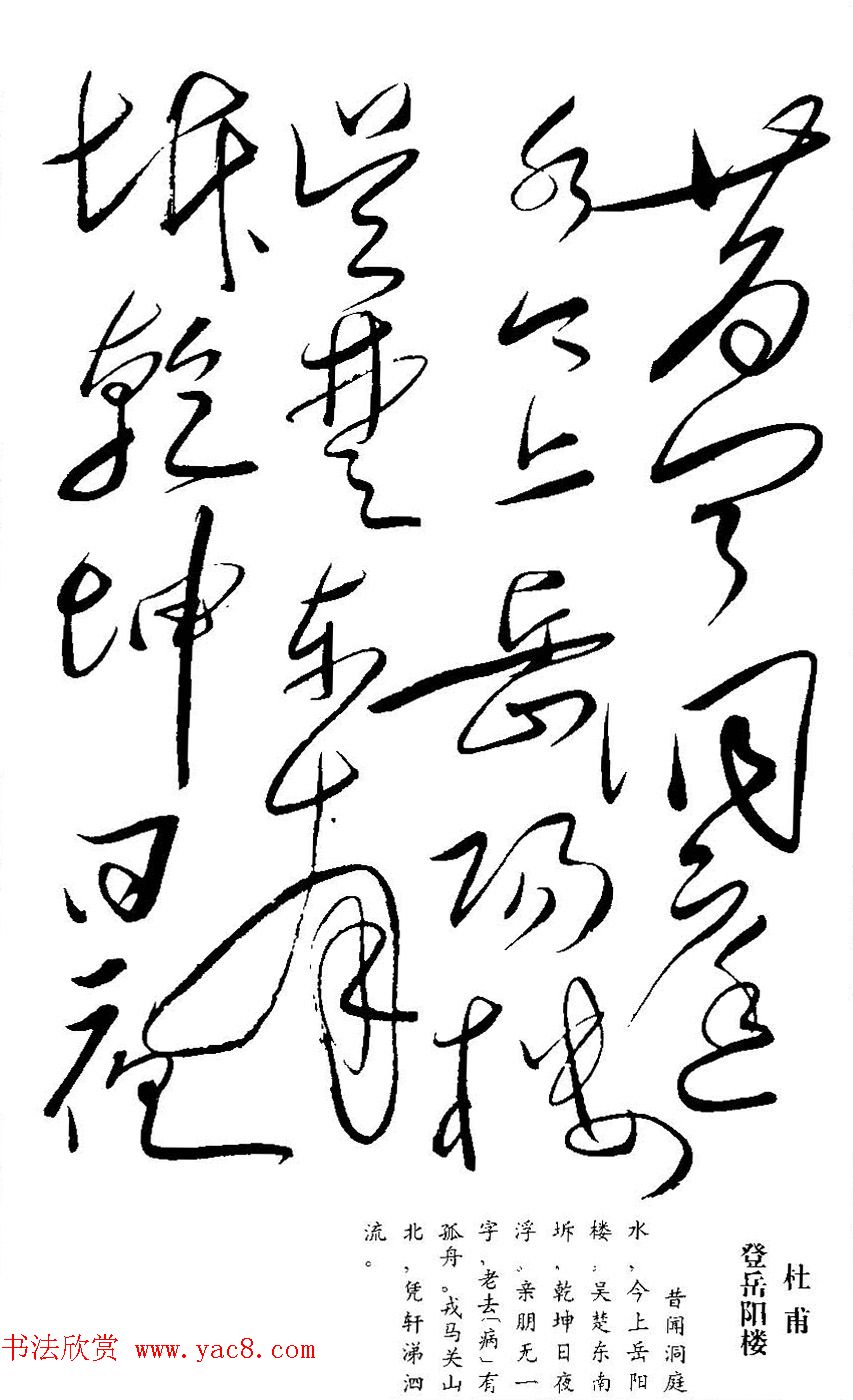 昔闻洞庭
水今上岳阳楼
吴楚东南
坼乾坤日夜
杜甫
登岳阳楼
昔闻洞庭
水，今上岳阳
楼；吴楚东南
坼，乾坤日夜
浮。亲朋无一
字，老去「病」有
孤舟。戎马关山
北，凭轩涕泗
流。
书法欣赏 www.yac8.com